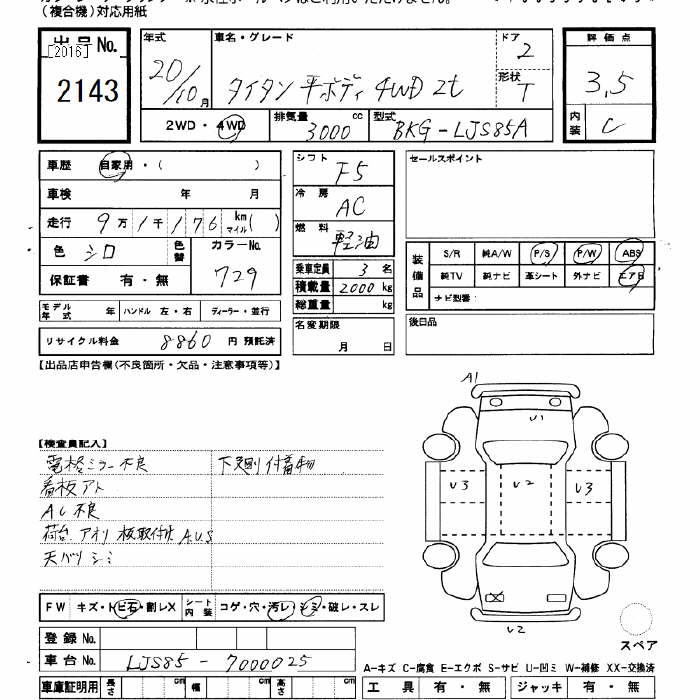 (複合機)対応用紙
出品No.
[2016]
2143
年式 20/10月
車名・グレード タイタン 平ボディ 4WD 2t
ドア 2
形状 T
評価点 3,5
内装 C
2WD・4WD
排気量 3000 cc
型式 BKG-LJS85A
車歴 自家用・( )
車検 年 月
走行 9万1千176 km マイル( )
色 シロ 色替
カラーNo. 729
保証書 有・無
シフト F5
冷房 AC
燃料 軽油
乗車定員 3名
積載量 2000 kg
総重量 kg
セールスポイント
装備品
S/R 純A/W P/S P/W ABS
純TV 純ナビ 革シート 外ナビ エアB
ナビ型番:
モデル年式 年 ハンドル 左・右 ディーラー・並行
名変期限 月 日
後日品
リサイクル料金 8860 円 預託済
【出品店申告欄(不良箇所・欠品・注意事項等)】
A1
U1
U3 U2 U3
X
U2
スペア
【検査員記入】
電格ミラー不良 下廻り付着物
看板アト
AC不良
荷台 アオリ 板取付け A.U.S
天バリ シミ
FW キズ・トビ石・割レX シート内装 コゲ・穴・汚レ・シミ・破レ・スレ
登録No.
車台No. LJS85-7000025
A-キズ C-腐食 E-エクボ S-サビ U-凹ミ W-補修 XX-交換済
車庫証明用 長さ cm 幅 cm 高さ cm
工具 有・無 ジャッキ 有・無